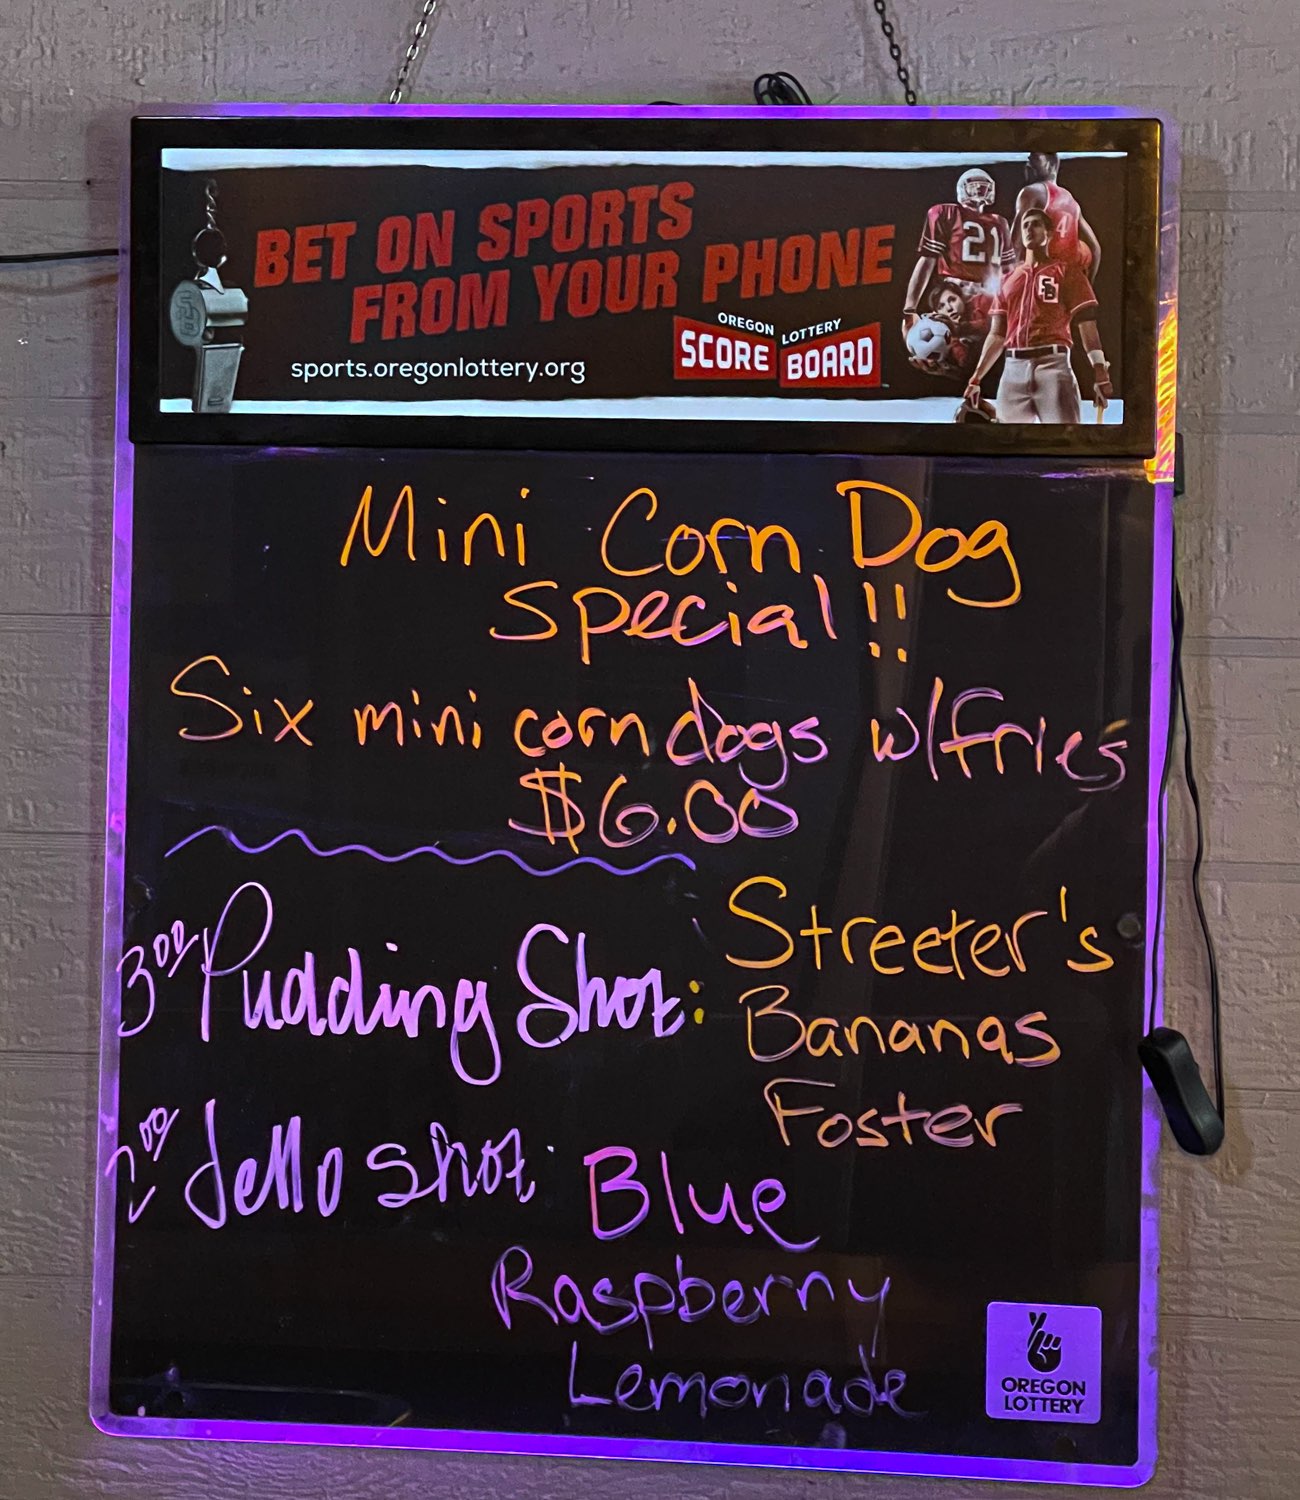 BET ON SPORTS
FROM YOUR PHONE
sports.oregonlottery.org
OREGON LOTTERY
SCORE BOARD
21
4
SB
SB
Mini Corn Dog
Special!!
Six mini corn dogs w/fries
$6.00
3.00 Pudding Shot: Streeter's
Bananas
Foster
2.00 Jello shot: Blue
Raspberry
Lemonade
OREGON
LOTTERY